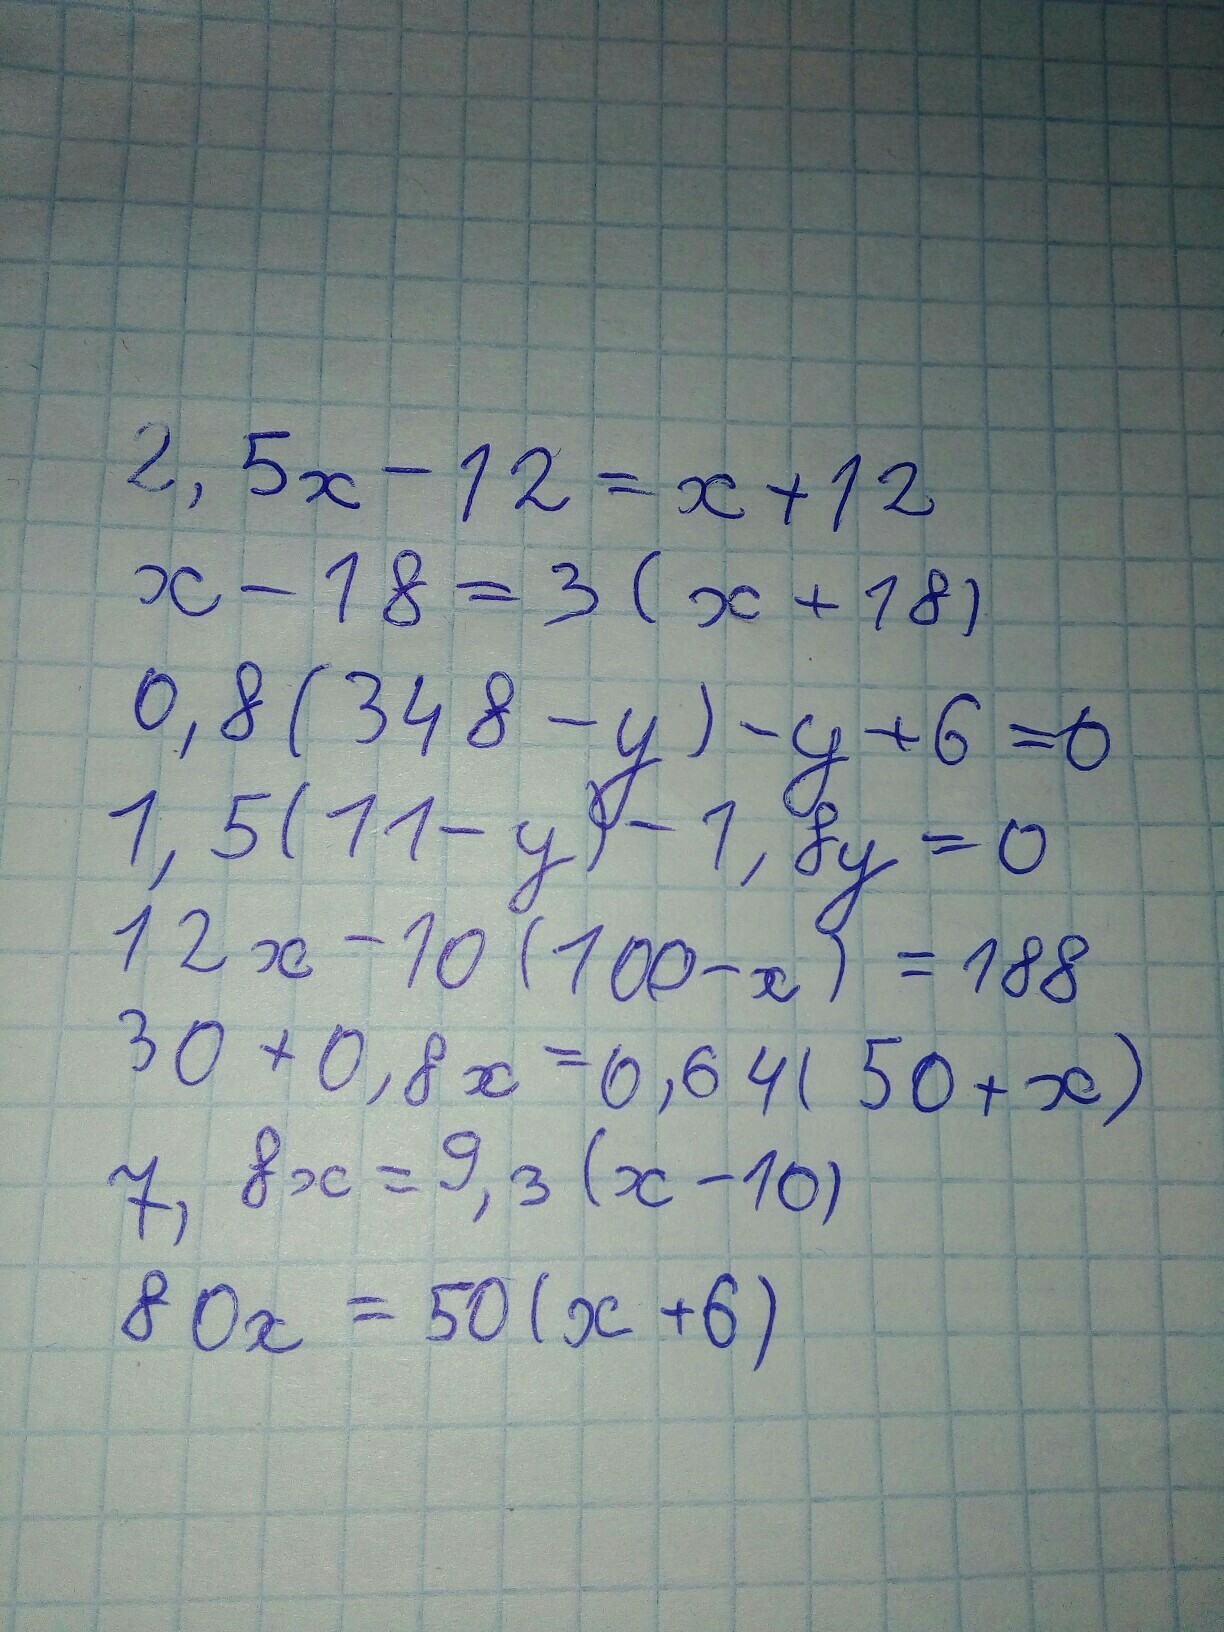 2,5x-12=x+12
x-18=3(x+18)
0,8(348-y)-y+6=0
1,5(11-y)-1,8y=0
12x-10(100-x)=188
30+0,8x=0,64(50+x)
7,8x=9,3(x-10)
80x=50(x+6)